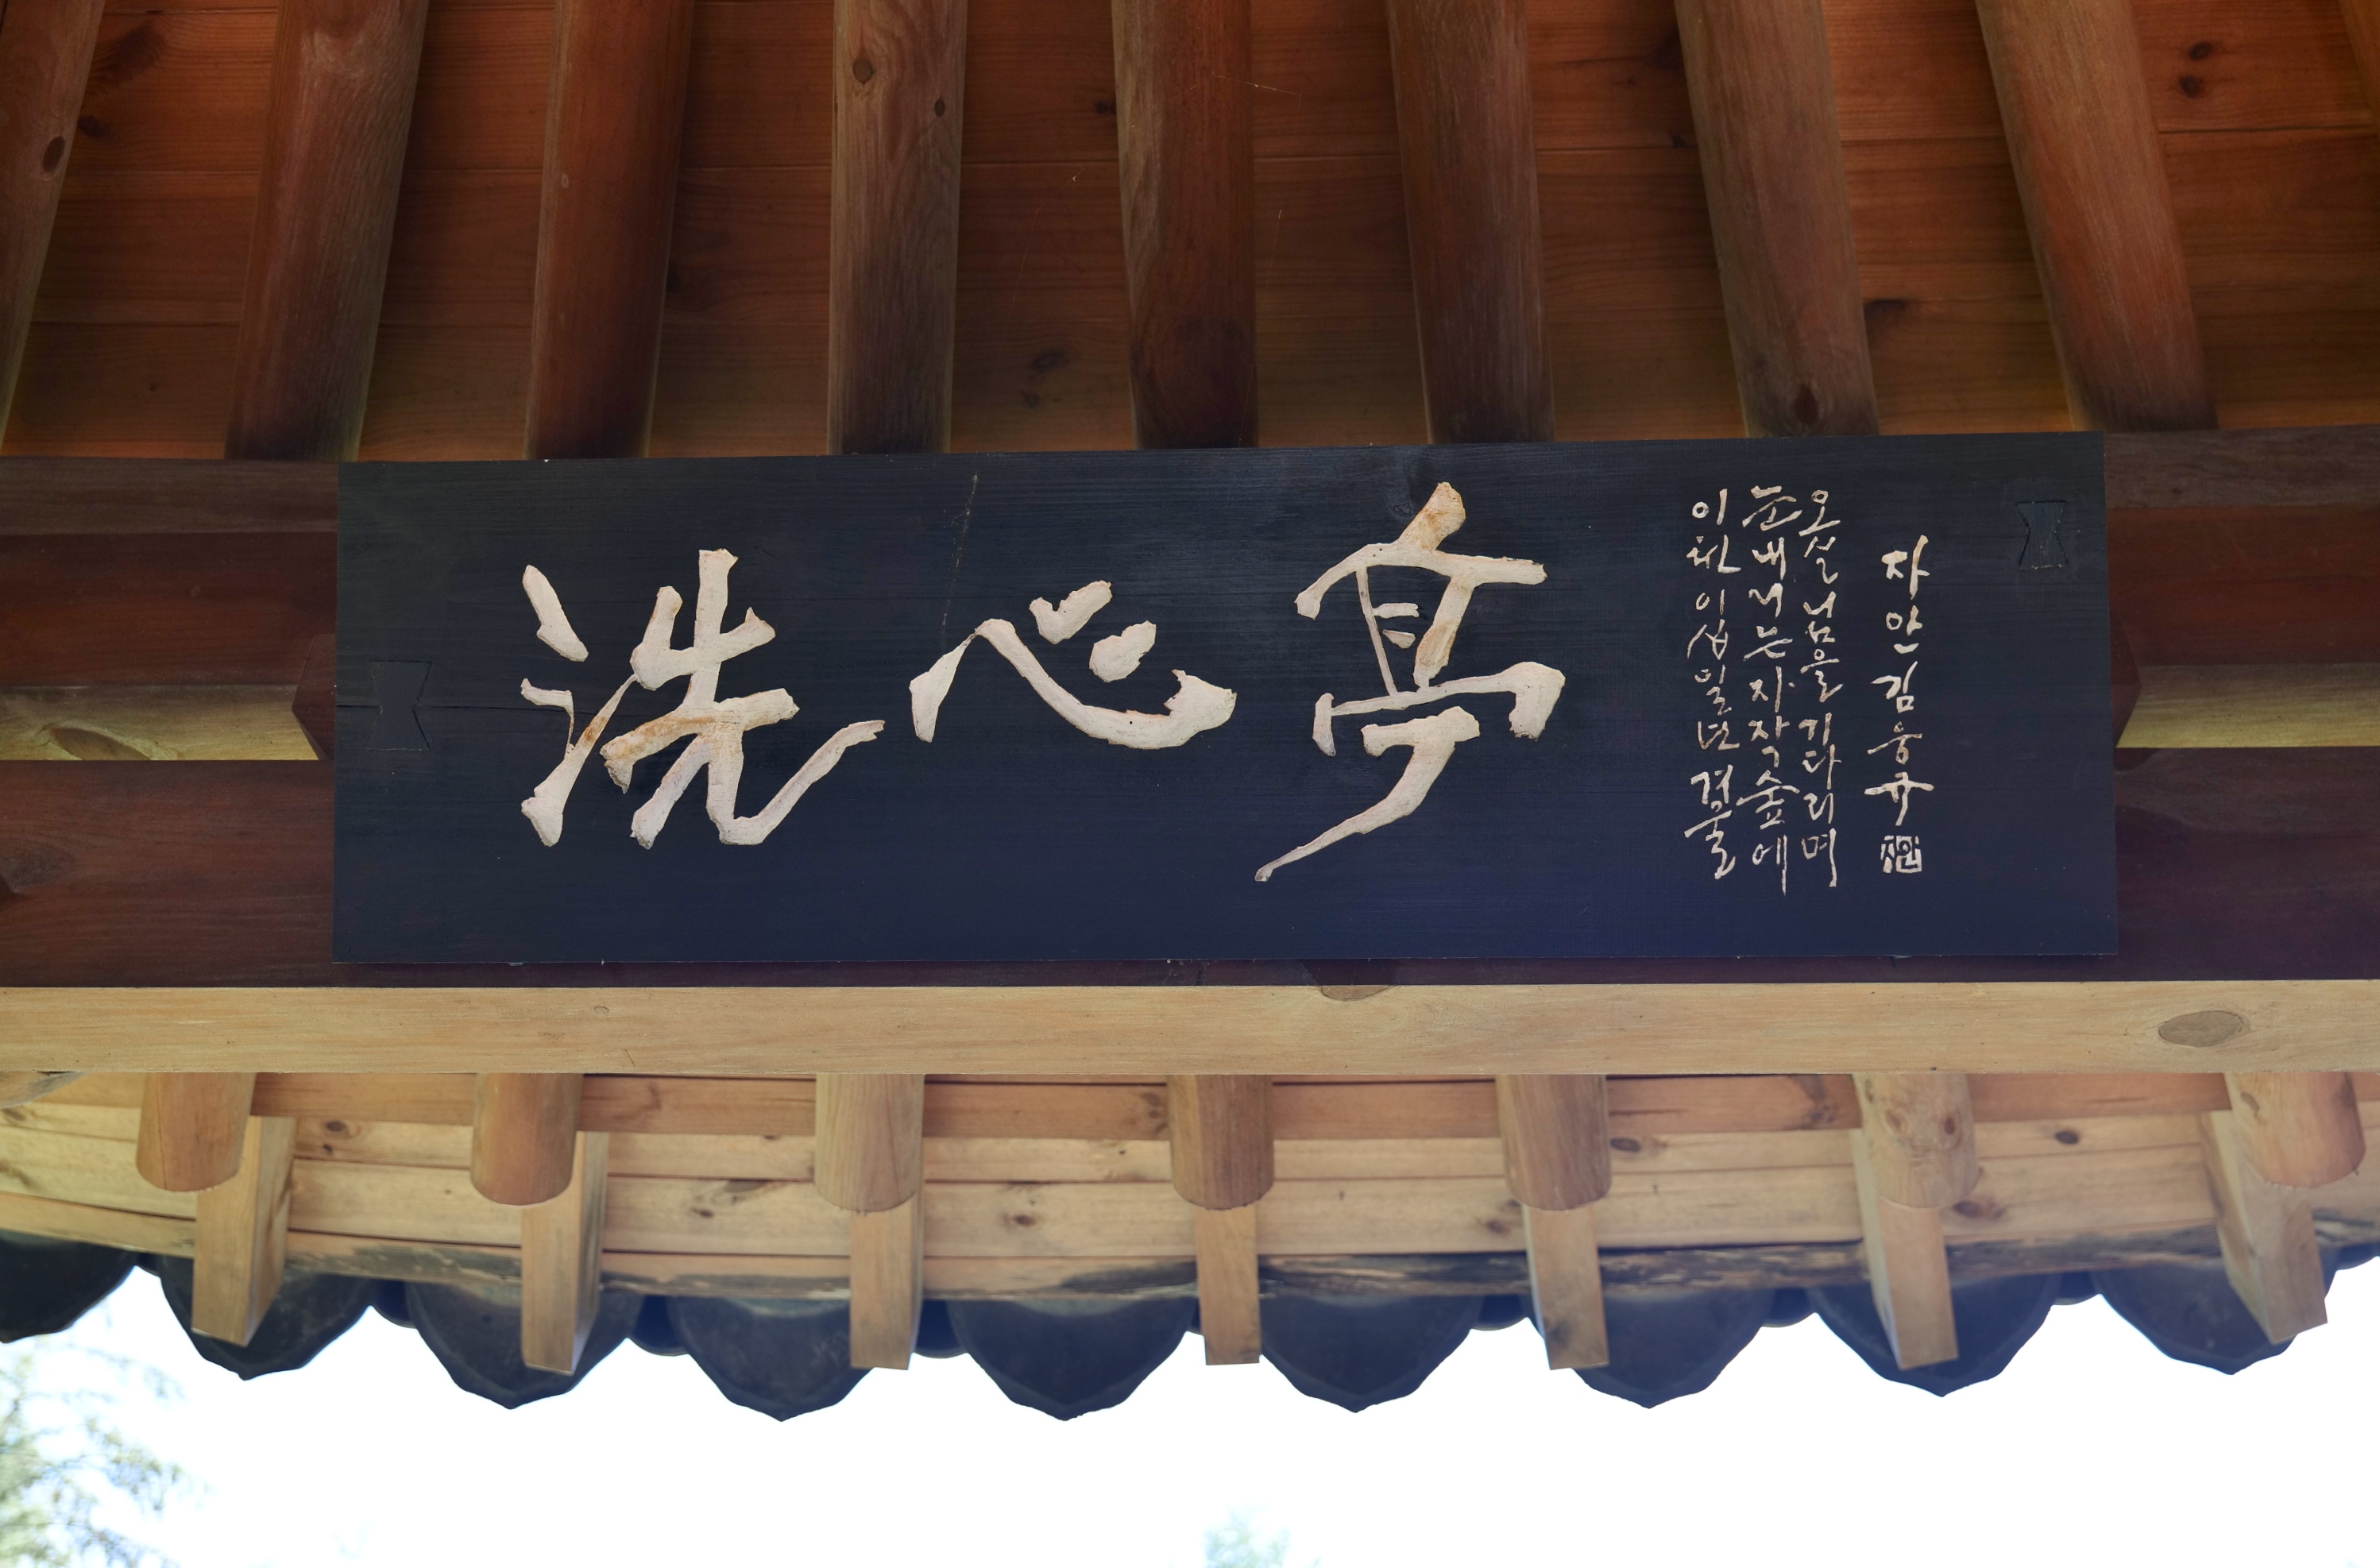 洗心亭
이천이십일년 겨울
눈내리는 자작숲에
오실 님을 기다리며
자안 김웅규